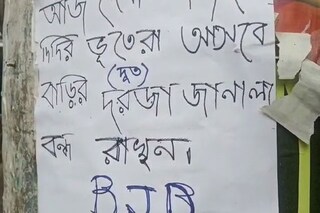 আজ
দিদির ভূতেরা আসবে
(দূত)
বাড়ির দরজা জানালা
বন্ধ রাখুন।
BJB